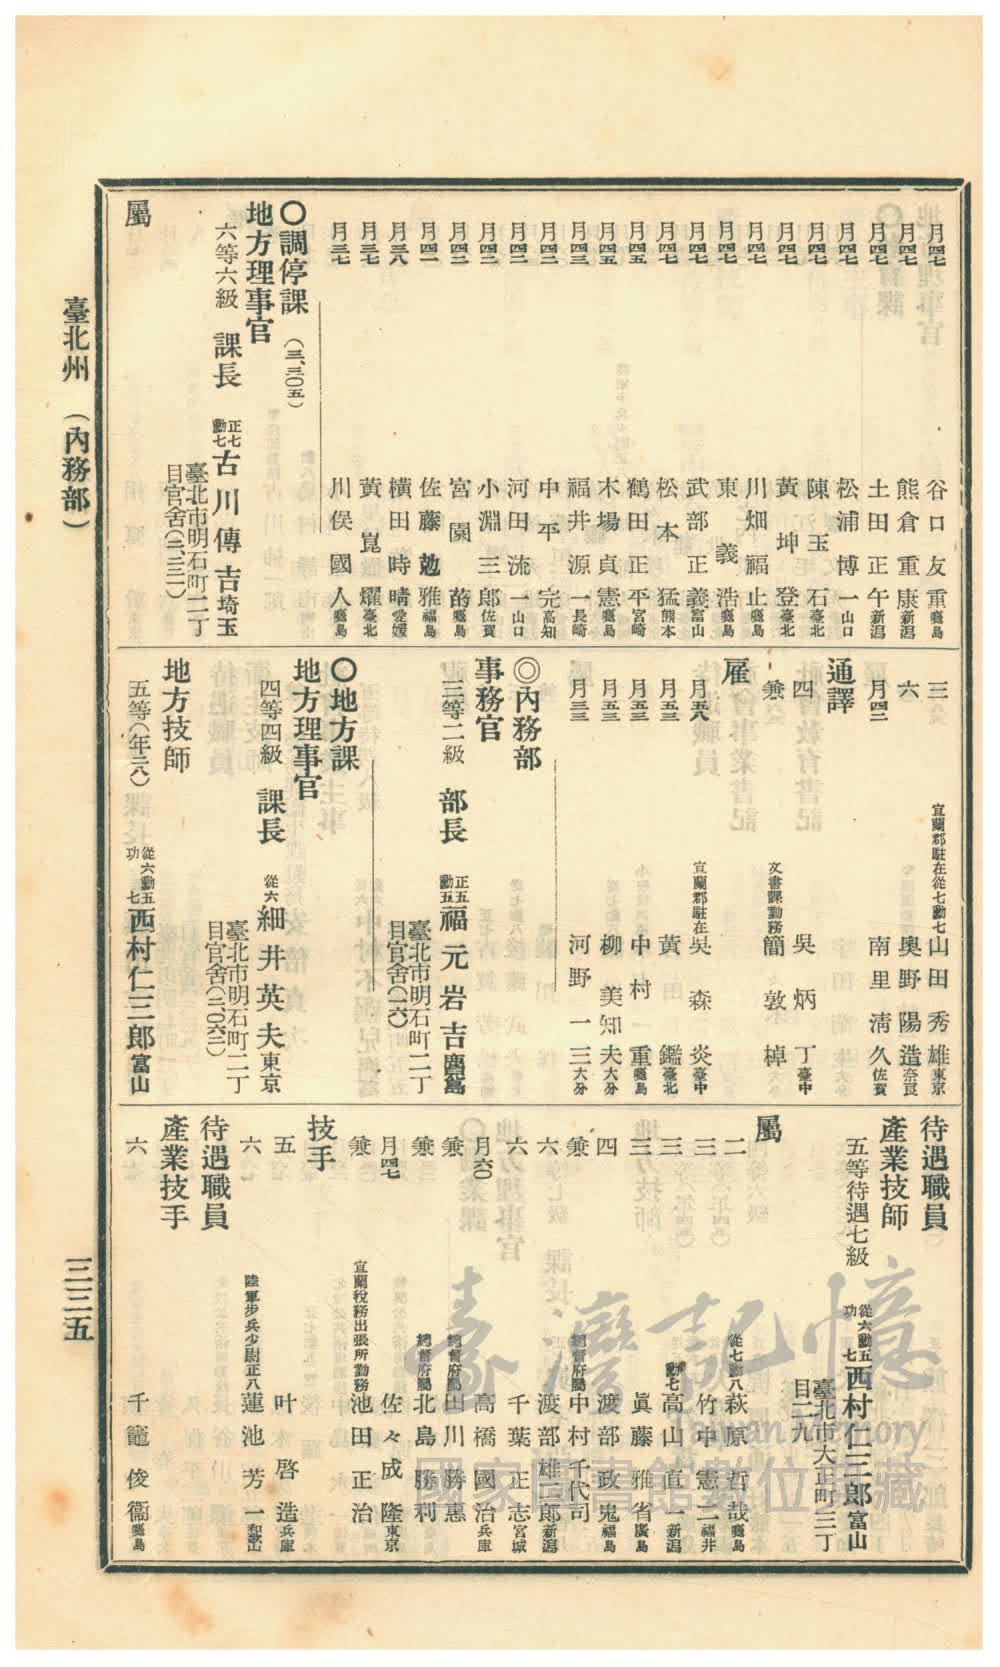 月四七 谷口友重 鹿兒島
月四七 熊倉重康 新潟
月四七 土田正午 新潟
月四七 松浦博一 山口
月四七 陳玉石 臺北
月四七 黃坤登 臺北
月四七 川畑福止 鹿兒島
月四七 東義浩 鹿兒島
月四七 武部正義 富山
月四七 松本猛 熊本
月四五 鶴田正平 宮崎
月四五 木場貞憲 鹿兒島
月四三 福井源一 長崎
月四二 中平完 高知
月四二 河田流一 山口
月四二 小淵三郎 佐賀
月四二 宮園 鹿兒島
月四一 佐藤勉雅 福島
月三八 橫田時晴 愛媛
月三七 黃崑燿 臺北
月三七 川俣國人 鹿兒島
〇調停課(三、三〇五)
地方理事官
六等六級 課長 正七勳七 古川傳吉 埼玉
臺北市明石町二丁
目官舍(二、三三一)
屬
三 宜蘭郡駐在從七勳七 山田秀雄 東京
六 奧野陽造 奈良
月四二 南里淸久 佐賀
通譯
四 吳炳丁 臺中
兼 文書課勤務 簡敦棹
雇
月五八 宜蘭郡駐在 吳森炎 臺中
月五三 黃鑑 臺北
月五三 中村重 鹿兒島
月五三 柳美知夫 大分
月三三 河野一三 大分
◎內務部
事務官
三等二級 部長 正五勳五 福元岩吉 鹿兒島
臺北市明石町二丁
目官舍(一六)
〇地方課
地方理事官
四等四級 課長 從六 細井英夫 東京
臺北市明石町二丁
目官舍(三、〇六三)
地方技師
五等(年二八) 從六勳五功七 西村仁三郎 富山
待遇職員
產業技師
五等待遇七級 從六勳五功七 西村仁三郎 富山
臺北市大正町三丁
目二九
屬
二 從七勳八 萩原哲哉 鹿兒島
三 竹中憲二 福井
三 勳七 高山直一 新潟
三 眞藤雅省 廣島
四 渡部政嵬 福島
兼 總督府屬 中村千代司
六 渡部雄二郎 新潟
六 千葉正志 宮城
月六〇 高橋國治 兵庫
兼 總督府屬 山川勝惠
兼 總督府屬 北島勝利
月四七 佐々成隆 東京
兼 宜蘭稅務出張所勤務 池田正治
技手
五 叶啓造 兵庫
六 陸軍步兵少尉正八 蓮池芳一 和歌山
待遇職員
產業技手
六 千竈俊衞 鹿兒島
臺北州 (內務部)
三三五
臺灣記憶
Taiwan Memory
國家圖書館數位典藏